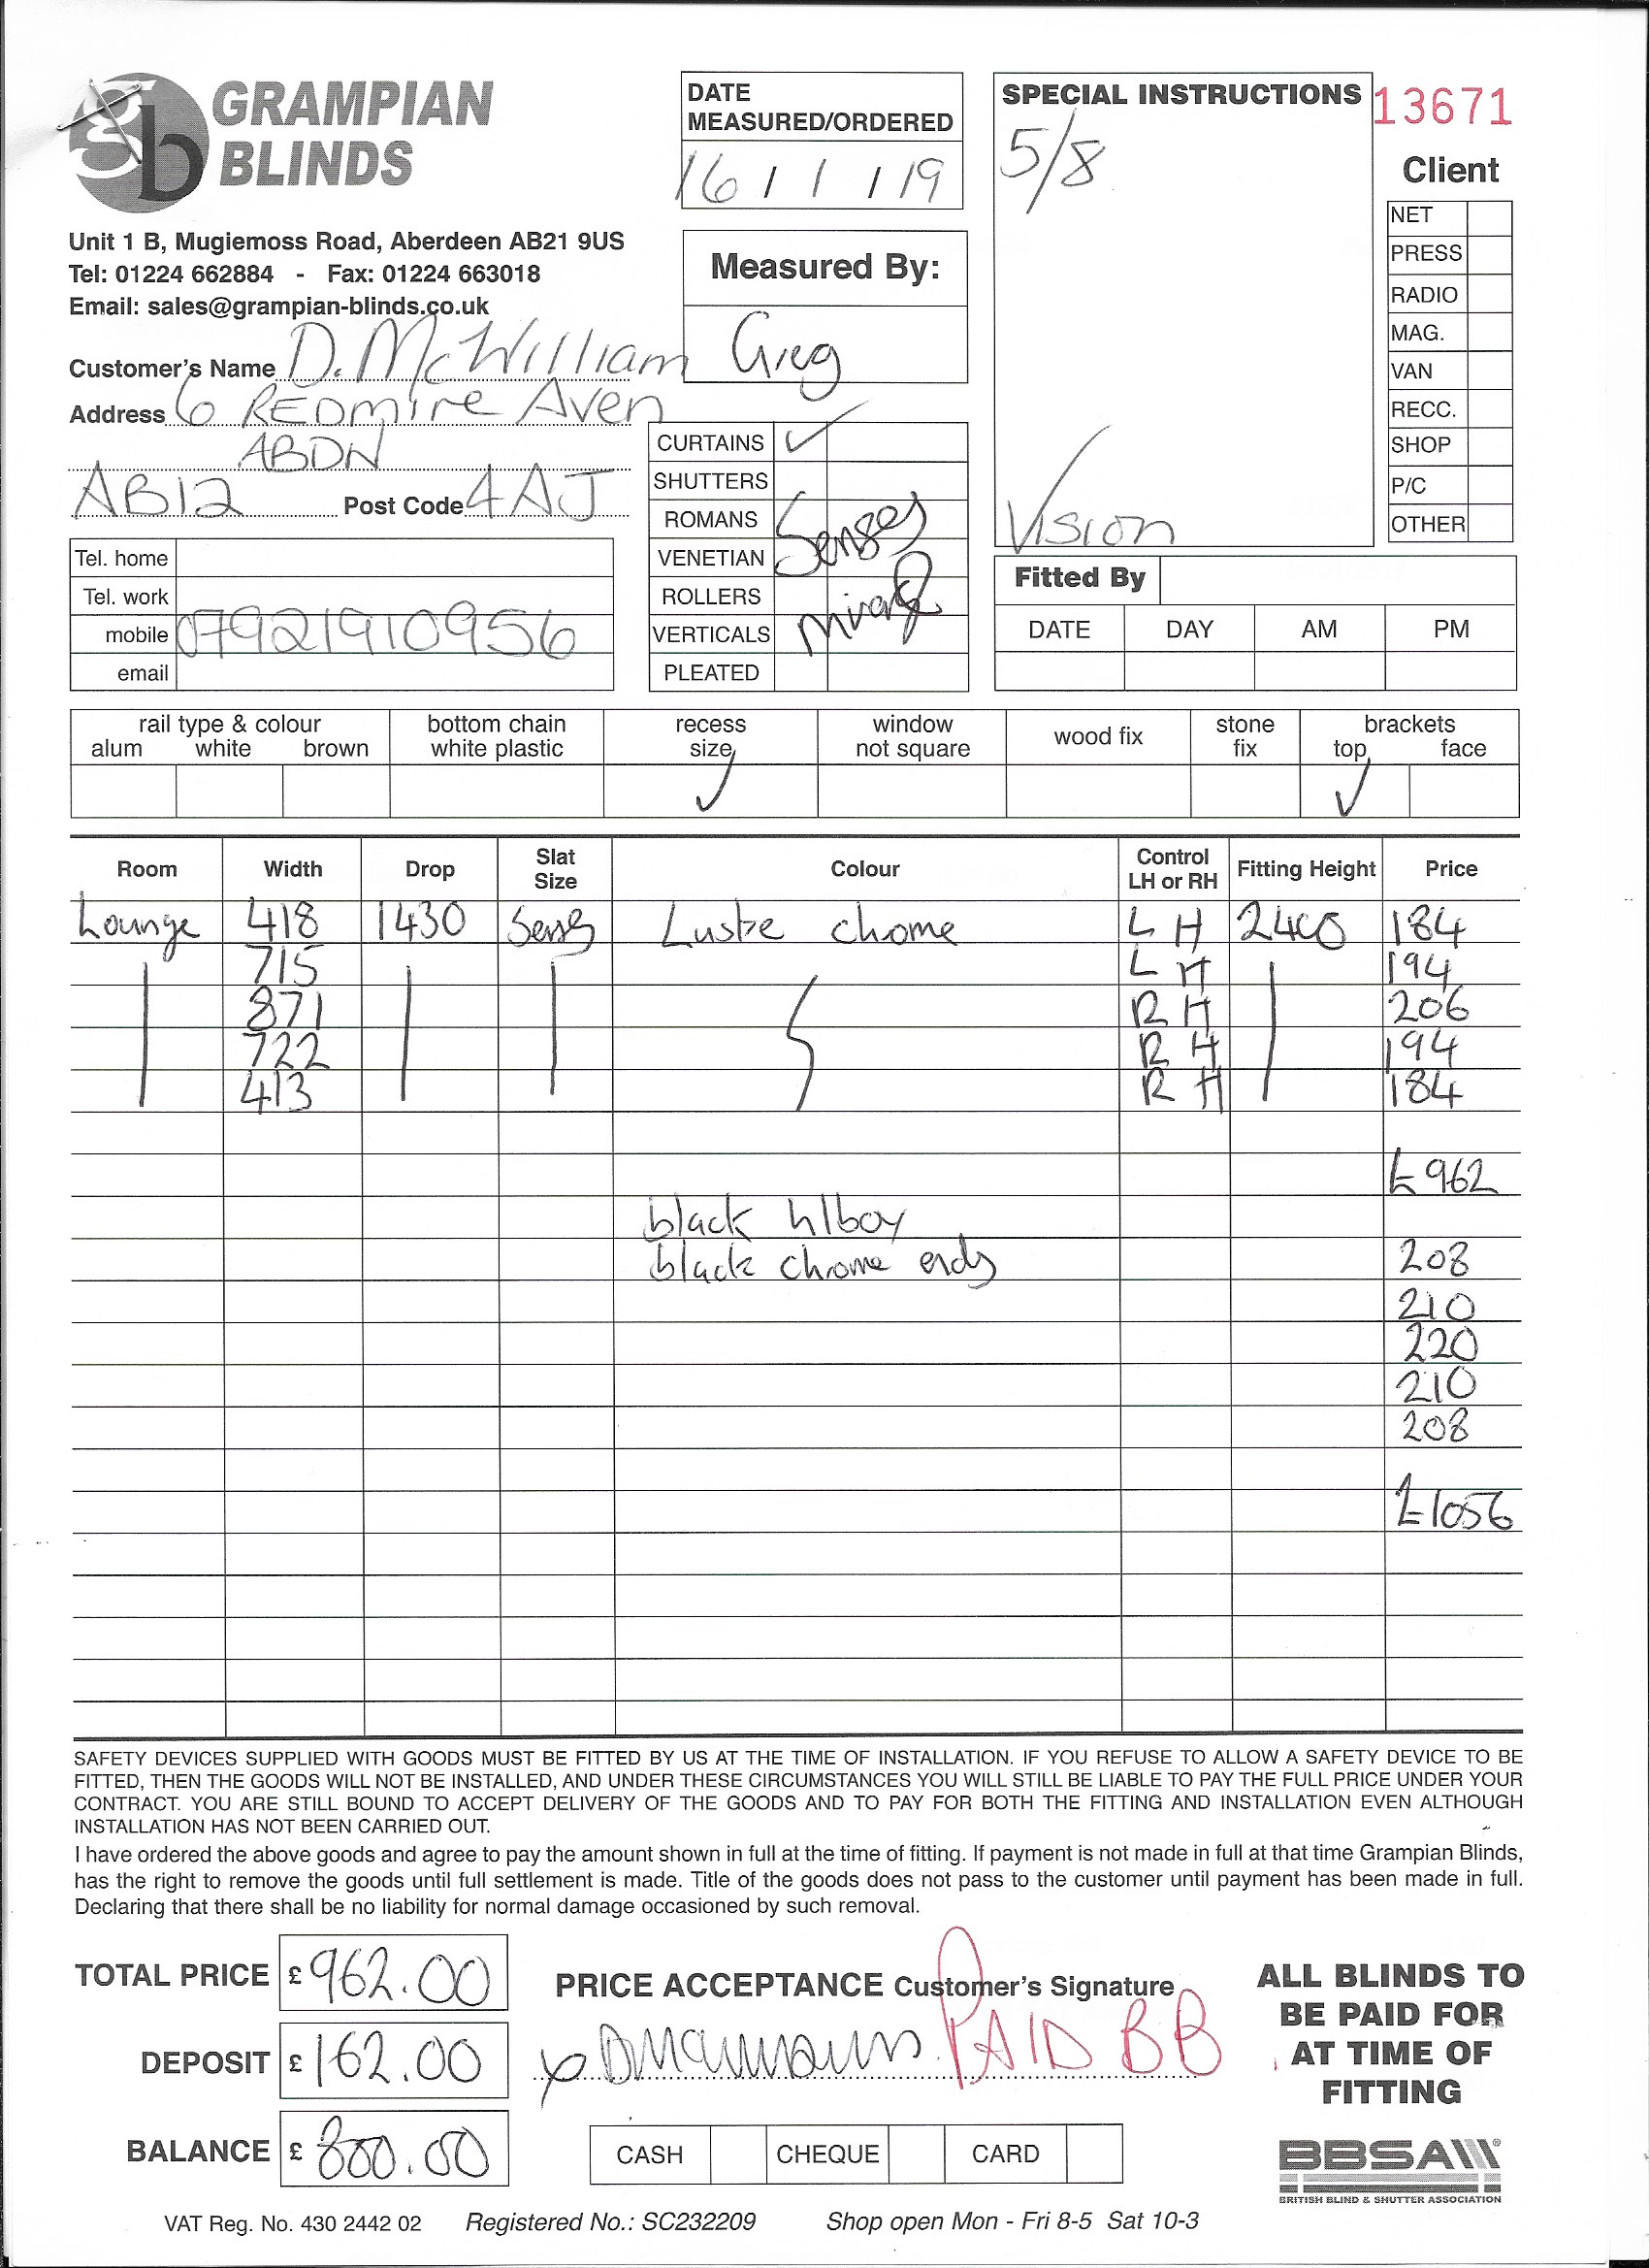 GRAMPIAN
BLINDS
Unit 1 B, Mugiemoss Road, Aberdeen AB21 9US
Tel: 01224 662884 - Fax: 01224 663018
Email: sales@grampian-blinds.co.uk
DATE
MEASURED/ORDERED
16 / 1 / 19
Measured By:
Greg
SPECIAL INSTRUCTIONS
5/8
Vision
13671
Client
NET
PRESS
RADIO
MAG.
VAN
RECC.
SHOP
P/C
OTHER
Customer's Name D. McWilliam
Address 6 REDmire Aven
ABDN
AB12 Post Code 4AJ
Tel. home
Tel. work
mobile 07921910956
email
CURTAINS ✓
SHUTTERS
ROMANS
VENETIAN
ROLLERS
VERTICALS
PLEATED
Senses
Mirage
Fitted By
DATE DAY AM PM
rail type & colour
alum white brown
bottom chain
white plastic
recess
size ✓
window
not square
wood fix
stone
fix
brackets
top ✓ face
Room Width Drop Slat Size Colour Control LH or RH Fitting Height Price
Lounge 418 1430 Senses Lustre chrome LH 2400 184
715 LH 194
871 RH 206
722 RH 194
413 RH 184
£962
black h/boy
black chrome ends 208
210
220
210
208
£1056
SAFETY DEVICES SUPPLIED WITH GOODS MUST BE FITTED BY US AT THE TIME OF INSTALLATION. IF YOU REFUSE TO ALLOW A SAFETY DEVICE TO BE
FITTED, THEN THE GOODS WILL NOT BE INSTALLED, AND UNDER THESE CIRCUMSTANCES YOU WILL STILL BE LIABLE TO PAY THE FULL PRICE UNDER YOUR
CONTRACT. YOU ARE STILL BOUND TO ACCEPT DELIVERY OF THE GOODS AND TO PAY FOR BOTH THE FITTING AND INSTALLATION EVEN ALTHOUGH
INSTALLATION HAS NOT BEEN CARRIED OUT.
I have ordered the above goods and agree to pay the amount shown in full at the time of fitting. If payment is not made in full at that time Grampian Blinds,
has the right to remove the goods until full settlement is made. Title of the goods does not pass to the customer until payment has been made in full.
Declaring that there shall be no liability for normal damage occasioned by such removal.
TOTAL PRICE £ 962.00
DEPOSIT £ 162.00
BALANCE £ 800.00
PRICE ACCEPTANCE Customer's Signature
x PAID BB
CASH CHEQUE CARD
ALL BLINDS TO
BE PAID FOR
AT TIME OF
FITTING
BBSA
BRITISH BLIND & SHUTTER ASSOCIATION
VAT Reg. No. 430 2442 02 Registered No.: SC232209 Shop open Mon - Fri 8-5 Sat 10-3